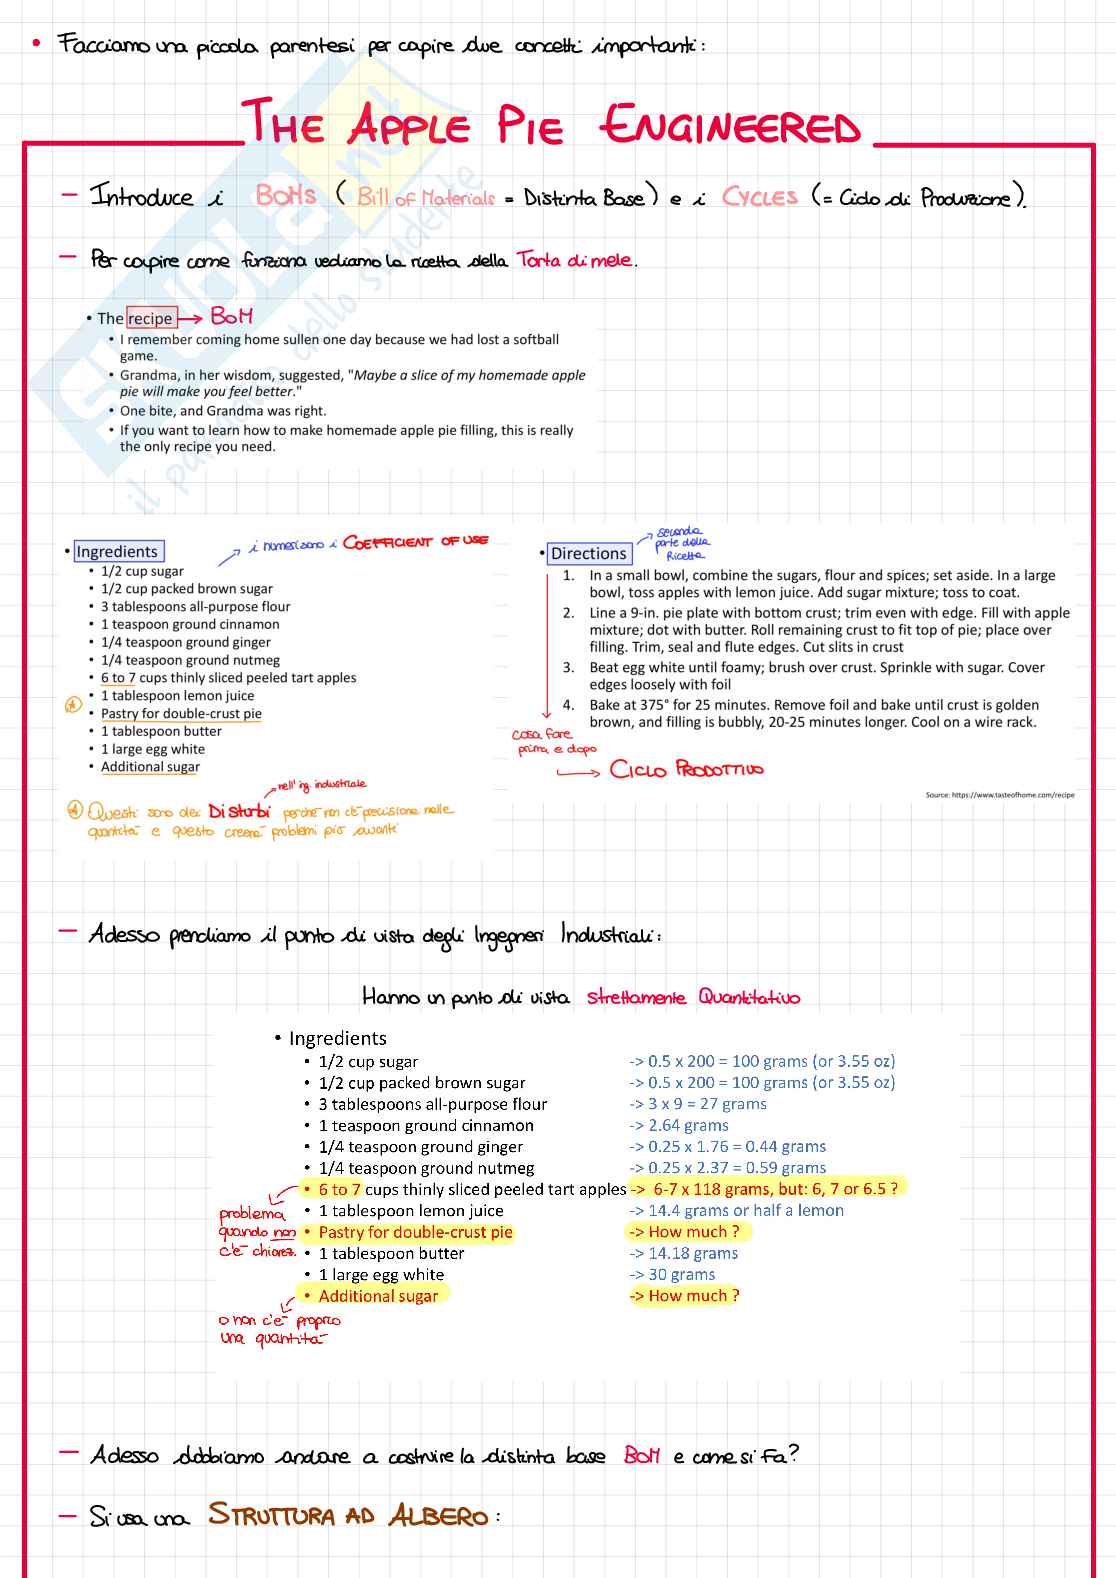 • Facciamo una piccola parentesi per capire due concetti importanti:
THE APPLE PIE ENGINEERED
– Introduce i BOMs ( Bill of Materials = Distinta Base) e i CYCLES (= Ciclo di Produzione).
– Per capire come funziona vediamo la ricetta della Torta di mele.
• The recipe → BOM
• I remember coming home sullen one day because we had lost a softball
game.
• Grandma, in her wisdom, suggested, "Maybe a slice of my homemade apple
pie will make you feel better."
• One bite, and Grandma was right.
• If you want to learn how to make homemade apple pie filling, this is really
the only recipe you need.
SKUOLA.net
il paradiso dello studente
• Ingredients
→ i numeri sono i COEFFICIENT OF USE
• 1/2 cup sugar
• 1/2 cup packed brown sugar
• 3 tablespoons all-purpose flour
• 1 teaspoon ground cinnamon
• 1/4 teaspoon ground ginger
• 1/4 teaspoon ground nutmeg
• 6 to 7 cups thinly sliced peeled tart apples
• 1 tablespoon lemon juice
• Pastry for double-crust pie
• 1 tablespoon butter
• 1 large egg white
• Additional sugar
→ nell' ing. industriale
Questi sono dei Disturbi perché non c'è precisione nelle
quantità e questo creerà problemi più avanti
• Directions
→ seconda
parte della
Ricetta
1. In a small bowl, combine the sugars, flour and spices; set aside. In a large
bowl, toss apples with lemon juice. Add sugar mixture; toss to coat.
2. Line a 9-in. pie plate with bottom crust; trim even with edge. Fill with apple
mixture; dot with butter. Roll remaining crust to fit top of pie; place over
filling. Trim, seal and flute edges. Cut slits in crust
3. Beat egg white until foamy; brush over crust. Sprinkle with sugar. Cover
edges loosely with foil
4. Bake at 375° for 25 minutes. Remove foil and bake until crust is golden
brown, and filling is bubbly, 20-25 minutes longer. Cool on a wire rack.
cosa fare
prima e dopo
→ CICLO PRODOTTIVO
Source: https://www.tasteofhome.com/recipe
– Adesso prendiamo il punto di vista degli Ingegneri Industriali:
Hanno un punto di vista strettamente Quantitativo
• Ingredients
• 1/2 cup sugar -> 0.5 x 200 = 100 grams (or 3.55 oz)
• 1/2 cup packed brown sugar -> 0.5 x 200 = 100 grams (or 3.55 oz)
• 3 tablespoons all-purpose flour -> 3 x 9 = 27 grams
• 1 teaspoon ground cinnamon -> 2.64 grams
• 1/4 teaspoon ground ginger -> 0.25 x 1.76 = 0.44 grams
• 1/4 teaspoon ground nutmeg -> 0.25 x 2.37 = 0.59 grams
• 6 to 7 cups thinly sliced peeled tart apples -> 6-7 x 118 grams, but: 6, 7 or 6.5 ?
• 1 tablespoon lemon juice -> 14.4 grams or half a lemon
• Pastry for double-crust pie -> How much ?
• 1 tablespoon butter -> 14.18 grams
• 1 large egg white -> 30 grams
• Additional sugar -> How much ?
problema
quando non
c'è chiarez.
o non c'è proprio
una quantità
– Adesso dobbiamo andare a costruire la distinta base BOM e come si fa?
– Si usa una STRUTTURA AD ALBERO :